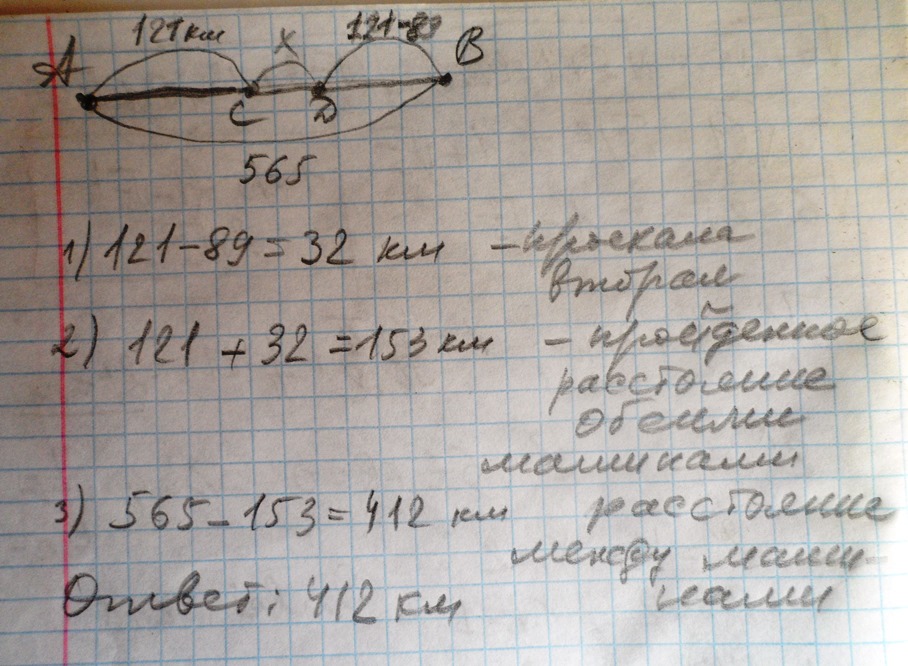 121км x 121-89
A B
C D
565
1) 121-89=32 км - проехала
вторая
2) 121+32=153км - пройденное
расстояние
обеими
машинами
3) 565-153=412 км расстояние
между маши-
нами
Ответ: 412 км